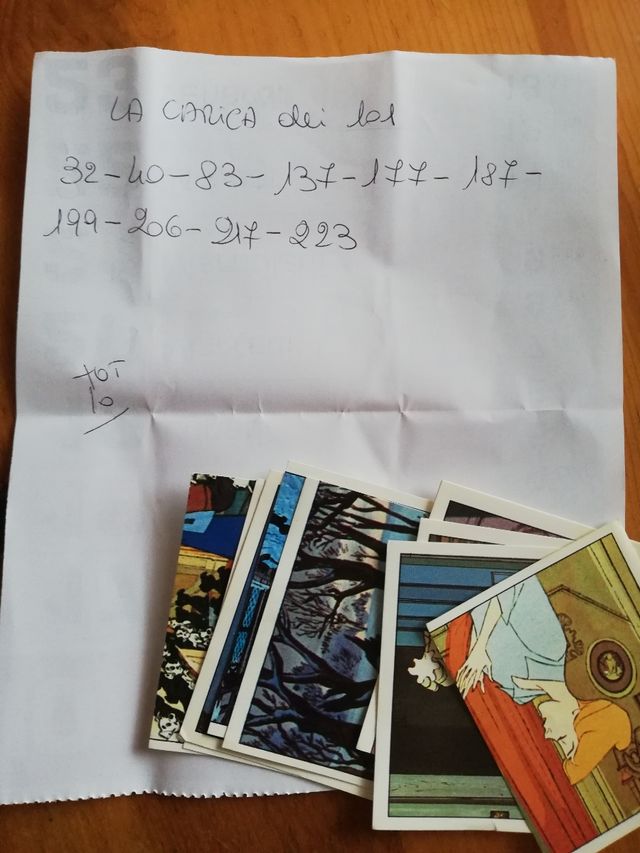 LA CARICA dei 101
32-40-83-137-177-187-
199-206-217-223
TOT
10